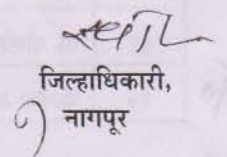 जिल्हाधिकारी,
नागपूर